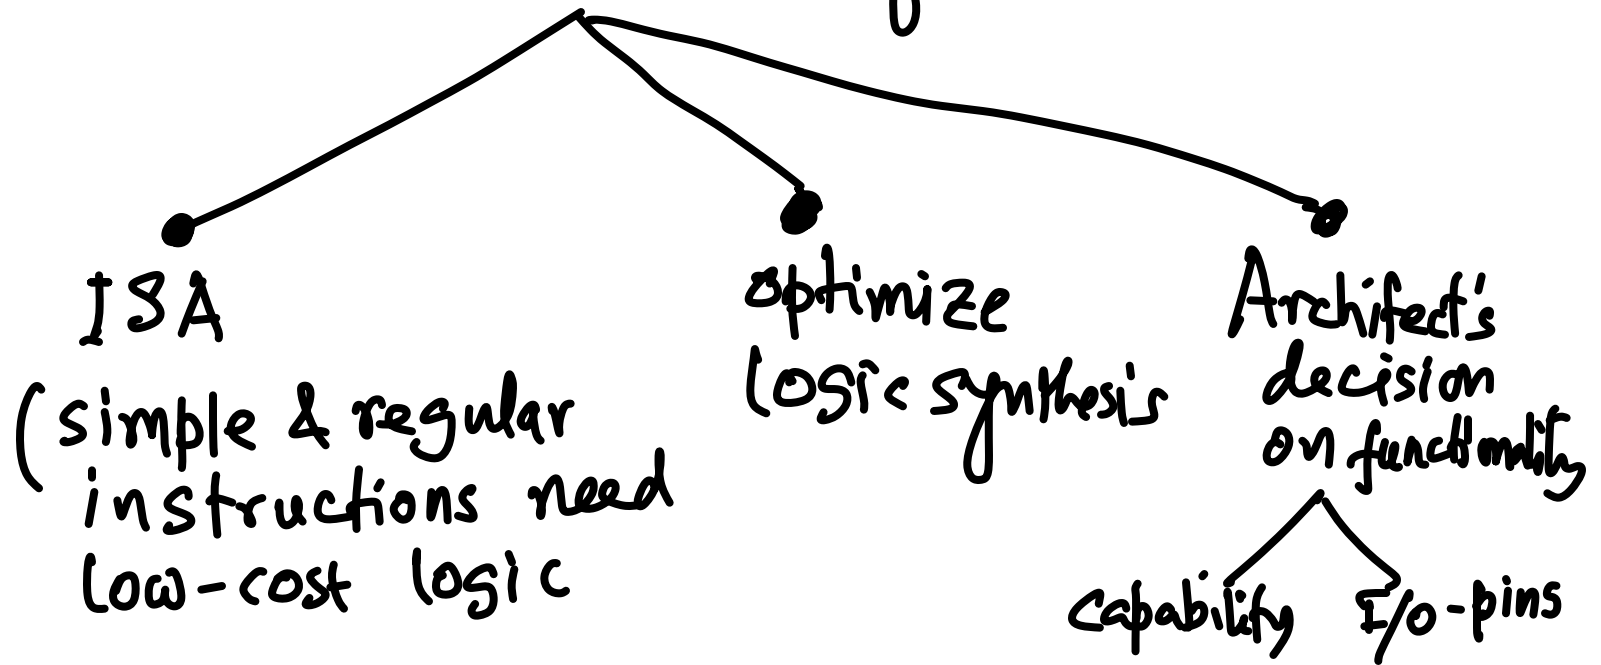 ISA
(simple & regular
instructions need
low-cost logic
optimize
logic synthesis
Architect's
decision
on functionality
capability
I/O-pins